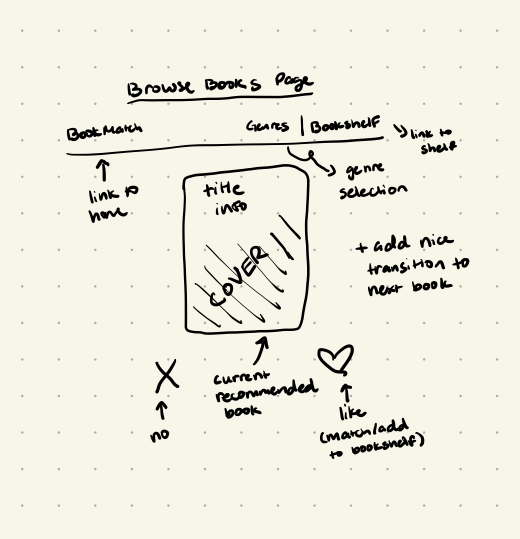 Browse Books Page
BookMatch
Genres | Bookshelf
link to
shelf
link to
home
genre
selection
title
info
COVER
+ add nice
transition to
next book
X
current
recommended
book
no
like
(match/add
to bookshelf)